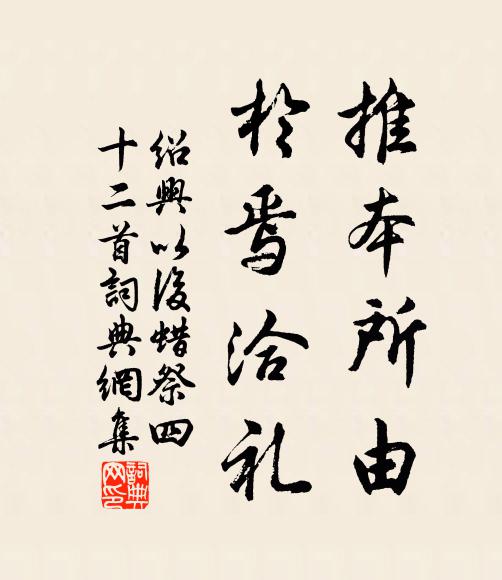 推本所由
於焉洽礼
绍興以後蜡祭四
十二首詞典網集
詞典
网印